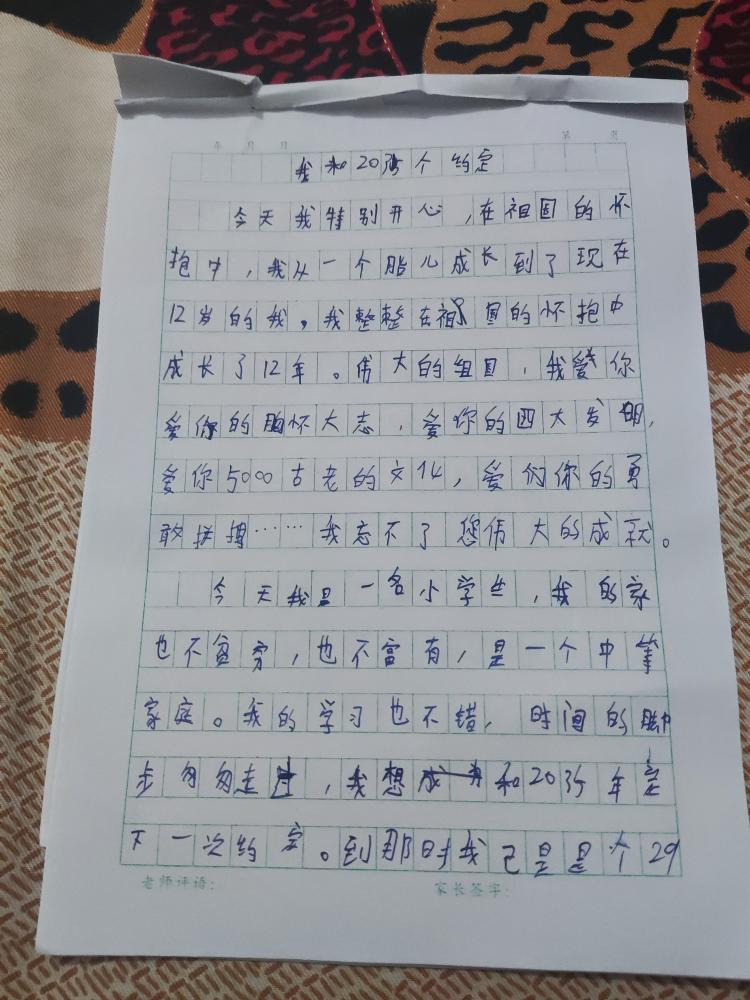 年 月 日 第 页
我和2035个约定
今天我特别开心,在祖国的怀
抱中,我从一个胎儿成长到了现在
12岁的我。我整整在祖国的怀抱中
成长了12年。伟大的组国,我爱你
爱你的胸怀大志,爱你的四大发明,
爱你5000古老的文化,爱们你的勇
敢拼搏……我忘不了您伟大的成就。
今天我是一名小学生,我的家
也不贫穷,也不富有,是一个中等
家庭。我的学习也不错,时间的脚
步匆匆走过,我想和2035年定
下一次约定。到那时我已是是个29
老师评语: 家长签字: